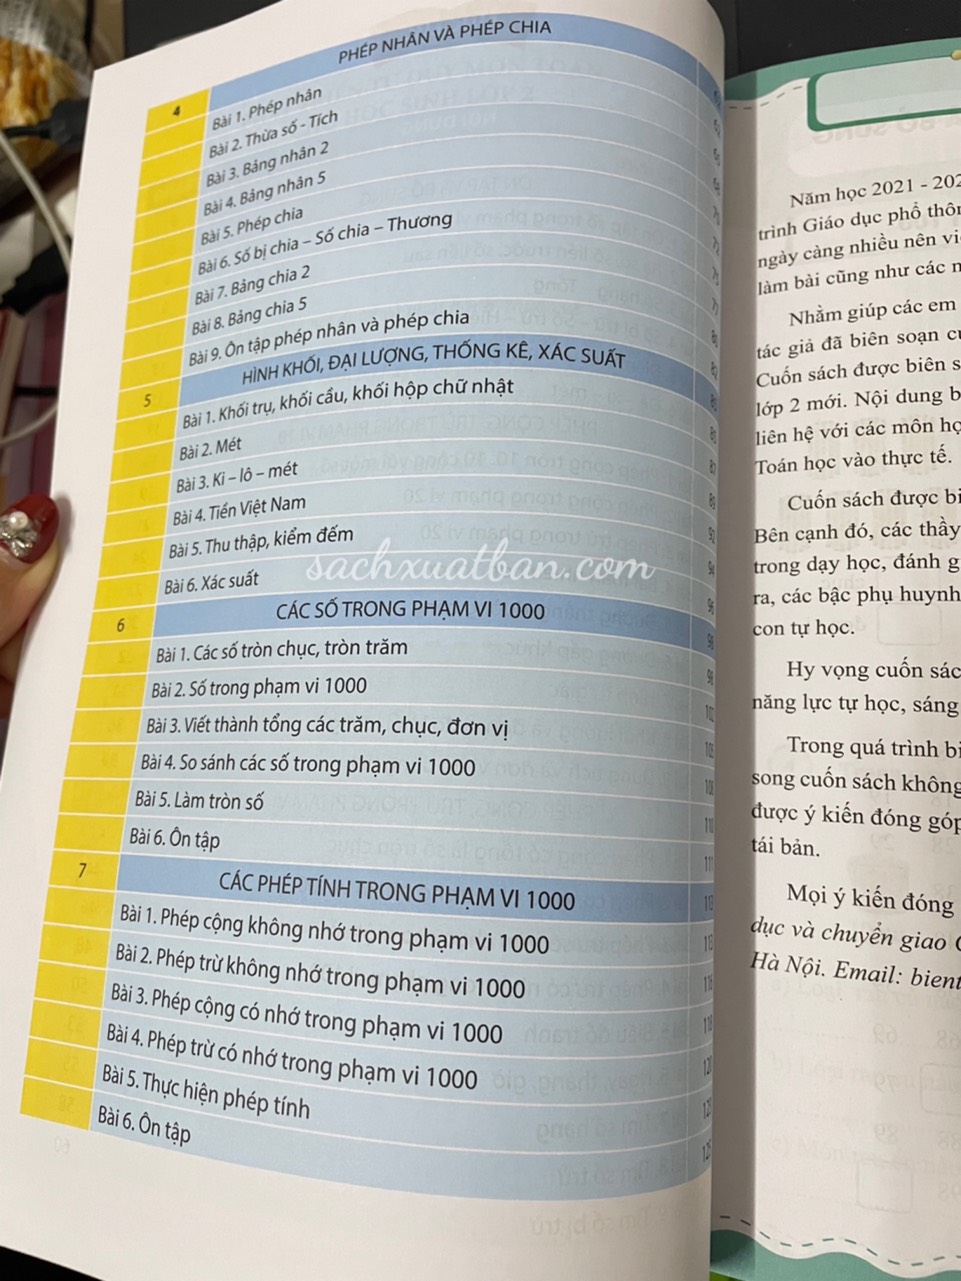 PHÉP NHÂN VÀ PHÉP CHIA
4
Bài 1. Phép nhân
Bài 2. Thừa số - Tích
Bài 3. Bảng nhân 2
Bài 4. Bảng nhân 5
Bài 5. Phép chia
Bài 6. Số bị chia – Số chia – Thương
Bài 7. Bảng chia 2
Bài 8. Bảng chia 5
Bài 9. Ôn tập phép nhân và phép chia
5 HÌNH KHỐI, ĐẠI LƯỢNG, THỐNG KÊ, XÁC SUẤT
Bài 1. Khối trụ, khối cầu, khối hộp chữ nhật
Bài 2. Mét
Bài 3. Ki – lô – mét
Bài 4. Tiền Việt Nam
Bài 5. Thu thập, kiểm đếm
Bài 6. Xác suất
sachxuatban.com
6 CÁC SỐ TRONG PHẠM VI 1000
Bài 1. Các số tròn chục, tròn trăm
Bài 2. Số trong phạm vi 1000
Bài 3. Viết thành tổng các trăm, chục, đơn vị
Bài 4. So sánh các số trong phạm vi 1000
Bài 5. Làm tròn số
Bài 6. Ôn tập
7 CÁC PHÉP TÍNH TRONG PHẠM VI 1000
Bài 1. Phép cộng không nhớ trong phạm vi 1000
Bài 2. Phép trừ không nhớ trong phạm vi 1000
Bài 3. Phép cộng có nhớ trong phạm vi 1000
Bài 4. Phép trừ có nhớ trong phạm vi 1000
Bài 5. Thực hiện phép tính
Bài 6. Ôn tập
Năm học 2021 - 202
trình Giáo dục phổ thôn
ngày càng nhiều nên vi
làm bài cũng như các n
Nhằm giúp các em
tác giả đã biên soạn c
Cuốn sách được biên s
lớp 2 mới. Nội dung b
liên hệ với các môn họ
Toán học vào thực tế.
Cuốn sách được bi
Bên cạnh đó, các thầy
trong dạy học, đánh g
ra, các bậc phụ huynh
con tự học.
Hy vọng cuốn sác
năng lực tự học, sáng
Trong quá trình bi
song cuốn sách không
được ý kiến đóng góp
tái bản.
Mọi ý kiến đóng
dục và chuyển giao
Hà Nội. Email: bient